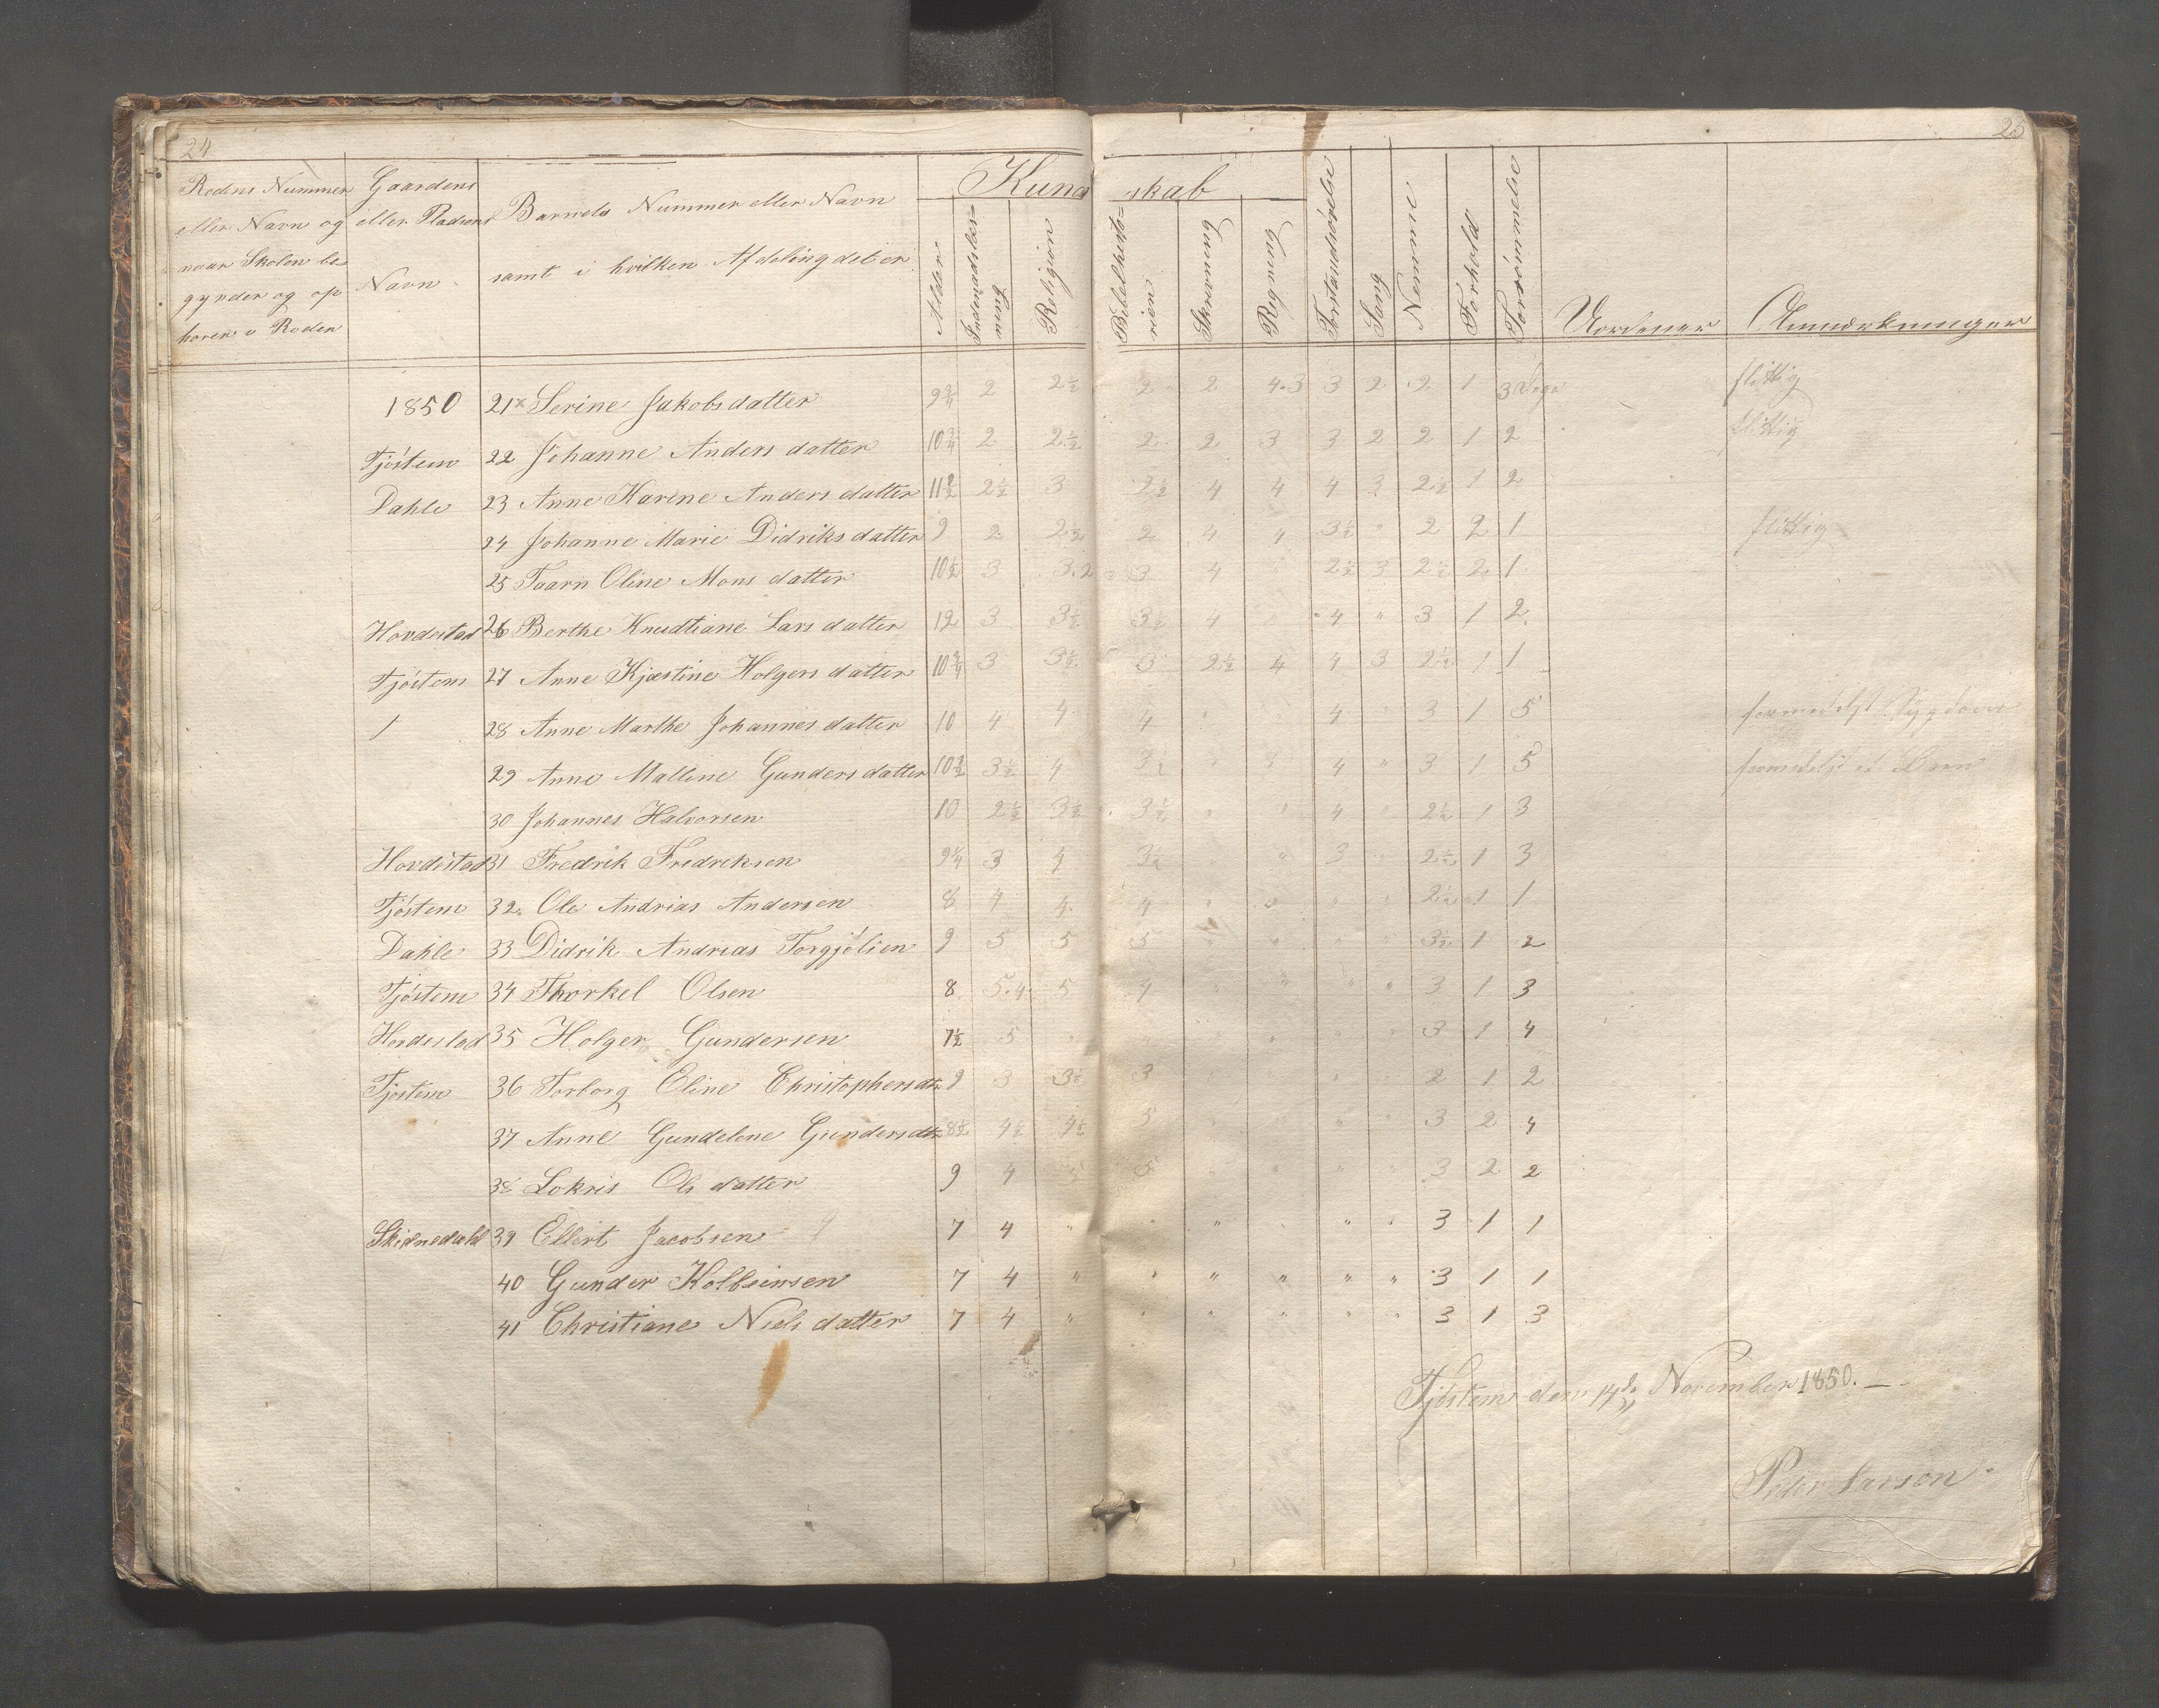 24
25
Rodens Nummer eller Navn og naar Skolen begynder og ophorer i Roden
Gaardens eller Pladsens Navn
Barnets Nummer eller Navn samt i hvilken Afdeling det er
Kundskab
Alder
Indenadslæsning
Religion
Bibelhistorien
Skrivning
Regning
Forstandsövelse
Sang
Nemme
Forhold
Forsömmelse
Uordener
Anmærkninger
1850 21 × Serine Jakobsdatter 9 3/4 2 2½ 2 2 4.3 3 2 2 1 3 Dage flittig
Tjöstem 22 Johanne Anders datter 10 3/4 2 2½ 2 2 3 3 2 2 1 2 flittig
Dahle 23 Anne Karine Anders datter 11½ 2½ 3 2½ 4 4 4 3 2½ 1 2
24 Johanne Marie Didriks datter 9 2 2½ 2 4 4 3½ " 2 2 1 flittig
25 Taarn Oline Mons datter 10½ 3 3.2 3 4 2½ 3 2½ 2 1
Hovdestad 26 Berthe Knudtiane Lars datter 12 3 3½ 3½ 4 4 " 3 1 2
Tjöstem 27 Anne Kjæstine Holgers datter 10 3/4 3 3½ 3 2½ 4 4 3 2½ 1 1
28 Anne Marthe Johannes datter 10 4 4 4 4 " 3 1 5 formedelst Sygdom
29 Anne Malline Gunders datter 10½ 3½ 4 3½ 4 " 3 1 5 formedelst
30 Johannes Halvorsen 10 2½ 3½ 3½ " " 4 2½ 1 3
Hovdestad 31 Fredrik Fredriksen 9¼ 3 4 3½ " 3 2½ 1 3
Tjöstem 32 Ole Andrias Andersen 8 4 4 4 2½ 1 1
Dahle 33 Didrik Andreas Torgjölsen 9 5 5 5 " " 3½ 1 2
Tjöstem 34 Thorkel Olsen 8 5.4 5 4 " " " 3 1 3
Hovdestad 35 Holger Gundersen 7½ 5 3 1 4
Tjöstem 36 Torborg Eline Christophersdtr 9 3 3½ 3 2 1 2
37 Anne Gundelene Gundersdtr 8½ 4½ 4½ 5 3 2 4
38 Lokris Ols datter 9 4 5 5 " " " 3 2 2
Skidnedahl 39 Ellert Jacobsen 7 4 " " " " 3 1 1
40 Gunder Kolbeinsen 7 4 " " " " " " 3 1 1
41 Christiane Niels datter 7 4 " " " " " " 3 1 3
Tjöstem den 14de November 1850.
Peder Larsen